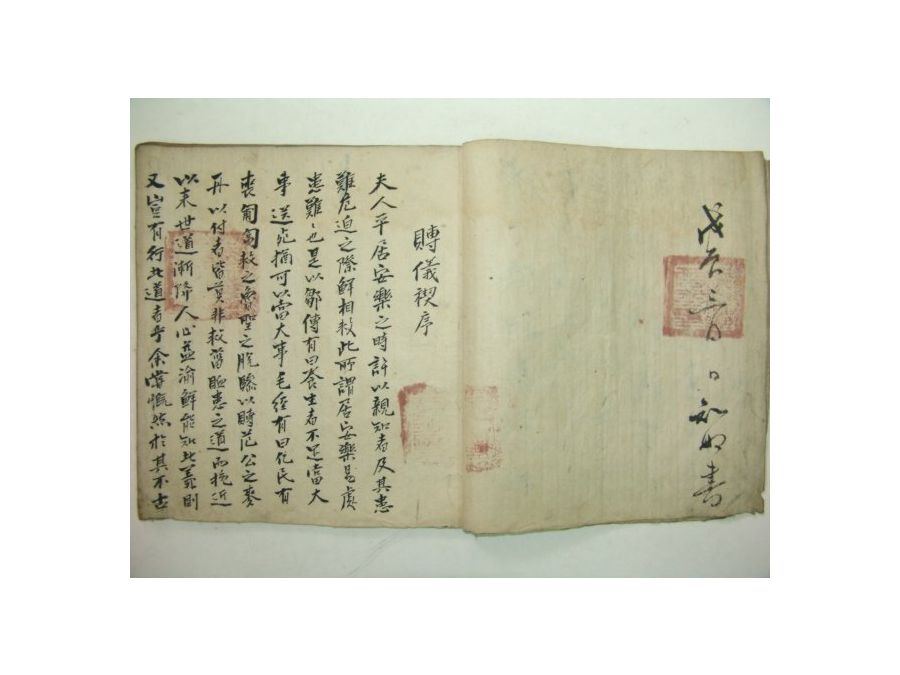 戊辰三月 日 書
賻儀禊序
夫人平居安樂之時許以親知者及其患
難危迫之際鮮相救此所謂居安樂易處
患難〻也是以鄒傳有曰養生者不足當大
事送死猶可以當大事毛經有曰凡民有
喪匍匐救之魯聖之脫驂以賻范公之麥
舟以付者皆莫非救舊恤患之道而挽近
以來世道漸降人心益渝鮮能知此義則
又豈有行此道者乎余嘗慨然於其不古